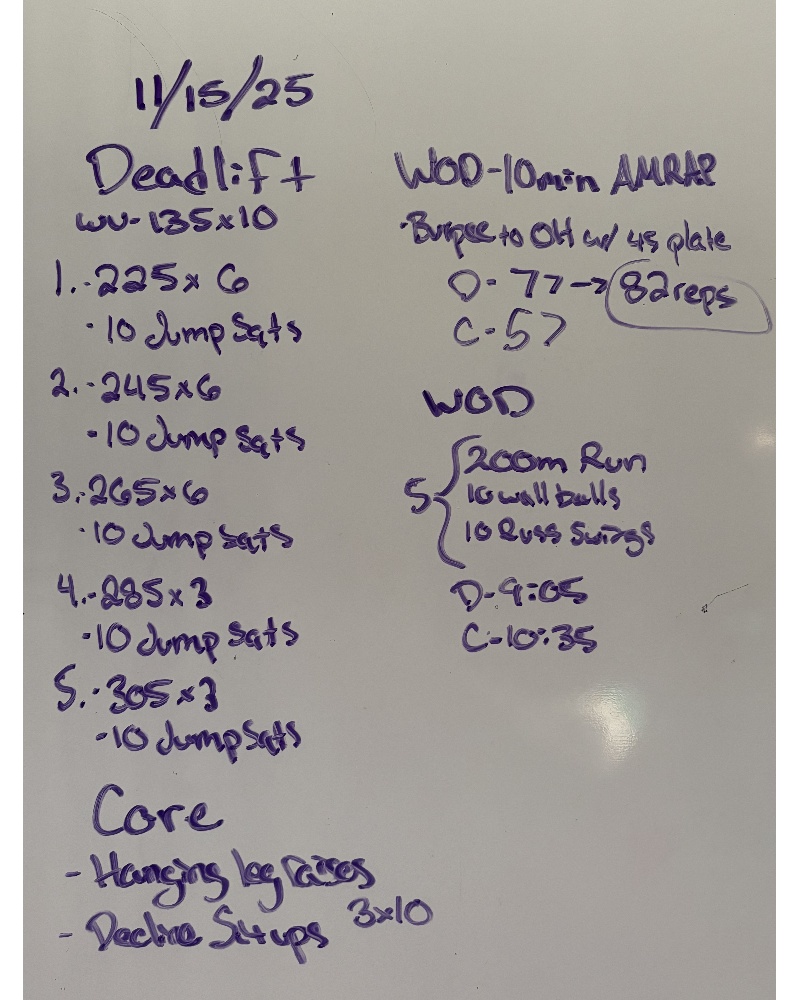 11/15/25
Deadlift
WU-135x10
1.-225x6
-10 Jump Sqts
2.-245x6
-10 Jump Sqts
3.-265x6
-10 Jump Sqts
4.-285x3
-10 Jump Sqts
5.-305x3
-10 Jump Sqts
Core
- Hanging leg raises
- Decline Sit ups 3x10
WOD-10min AMRAP
-Burpee to OH w/ 45 plate
D-77->82reps
C-57
WOD
5 {200m Run
10 wall balls
10 Russ Swings
D-9:05
C-10:35